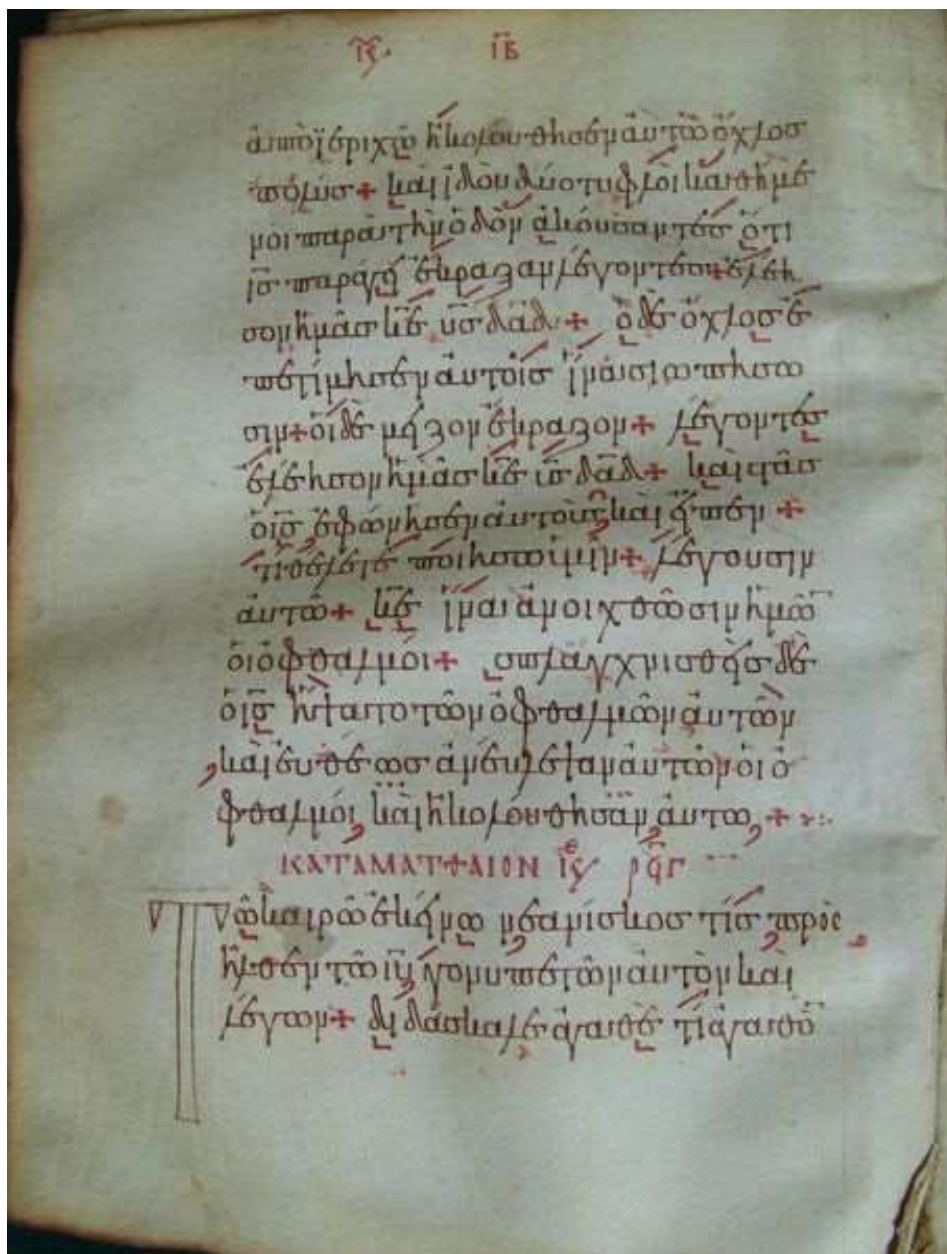 ἀπὸ ἱεριχῶ ἠκολούθησεν αὐτῶ ὄχλος
πολύς + καὶ ἰδοὺ δύο τυφλοὶ καθήμε
νοι παρὰ τὴν ὁδὸν ἀκούσαντες ὅτι
ις παράγει ἔκραξαν λέγοντες + ἐλέη
σον ἡμᾶς κε υς δαδ + ὁ δὲ ὄχλος ἐ
πετίμησεν αὐτοῖς ἵνα σιωπήσω
σιν + οἱ δὲ μεῖζον ἔκραζον + λέγοντες
ἐλέησον ἡμᾶς κε υς δαδ + καὶ στὰς
ὁ ις ἐφώνησεν αὐτοὺς καὶ εἶπεν +
τί θέλετε ποιήσω ὑμῖν + λέγουσιν
αὐτῶ + κε ἵνα ἀνοιχθῶσιν ἡμῶ
οἱ ὀφθαλμοί + σπλαγχνισθεὶς δὲ
ὁ ις ἥψατο τῶν ὀφθαλμῶν αὐτῶν
καὶ εὐθέως ἀνέβλεψαν αὐτῶν οἱ ὀ
φθαλμοί καὶ ἠκολούθησαν αὐτῶ +
ΚΑΤΑ ΜΑΤΘΑΙΟΝ
Τῶ καιρῶ ἐκείνω νεανίσκος τίς προς
ῆλθεν τῶ ιυ γονυπετῶν αὐτὸν καὶ
λέγων + διδάσκαλε ἀγαθέ τί ἀγαθὸ